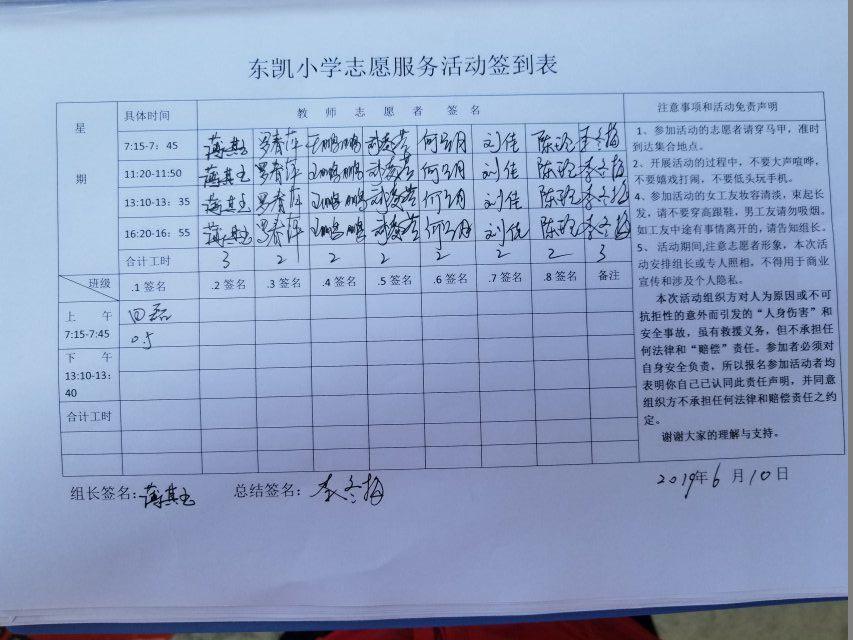 东凯小学志愿服务活动签到表
星期
具体时间 教师志愿者签名 注意事项和活动免责声明
7:15-7：45 蒋其玉 罗春萍 王鹏鹏 何 刘佳 陈玲 李冬梅
11:20-11:50 蒋其玉 罗春萍 王鹏鹏 何 刘佳 陈玲 李冬梅
13:10-13：35 蒋其玉 罗春萍 王鹏鹏 何 刘佳 陈玲 李冬梅
16:20-16：55 蒋其玉 罗春萍 王鹏鹏 何 刘佳 陈玲 李冬梅
合计工时 3 2 2 2 2 2 2 3
班级 .1 签名 .2 签名 .3 签名 .4 签名 .5 签名 .6 签名 .7 签名 .8 签名 备注
上午
7:15-7:45
田磊
0.5
下午
13:10-13：
40
合计工时
1、参加活动的志愿者请穿马甲，准时
到达集合地点。
2、开展活动的过程中，不要大声喧哗，
不要嬉戏打闹，不要低头玩手机。
4、参加活动的女工友妆容清淡，束起长
发，请不要穿高跟鞋，男工友请勿吸烟。
如工友中途有事情离开的，请告知组长。
5、活动期间,注意志愿者形象，本次活
动安排组长或专人照相，不得用于商业
宣传和涉及个人隐私。
本次活动组织方对人为原因或不可
抗拒性的意外而引发的“人身伤害”和
安全事故，虽有救援义务，但不承担任
何法律和“赔偿”责任。参加者必须对
自身安全负责，所以报名参加活动者均
表明你自己已认同此责任声明，并同意
组织方不承担任何法律和赔偿责任之约
定。
谢谢大家的理解与支持。
组长签名:蒋其玉 总结签名：李冬梅 2019年6月10日